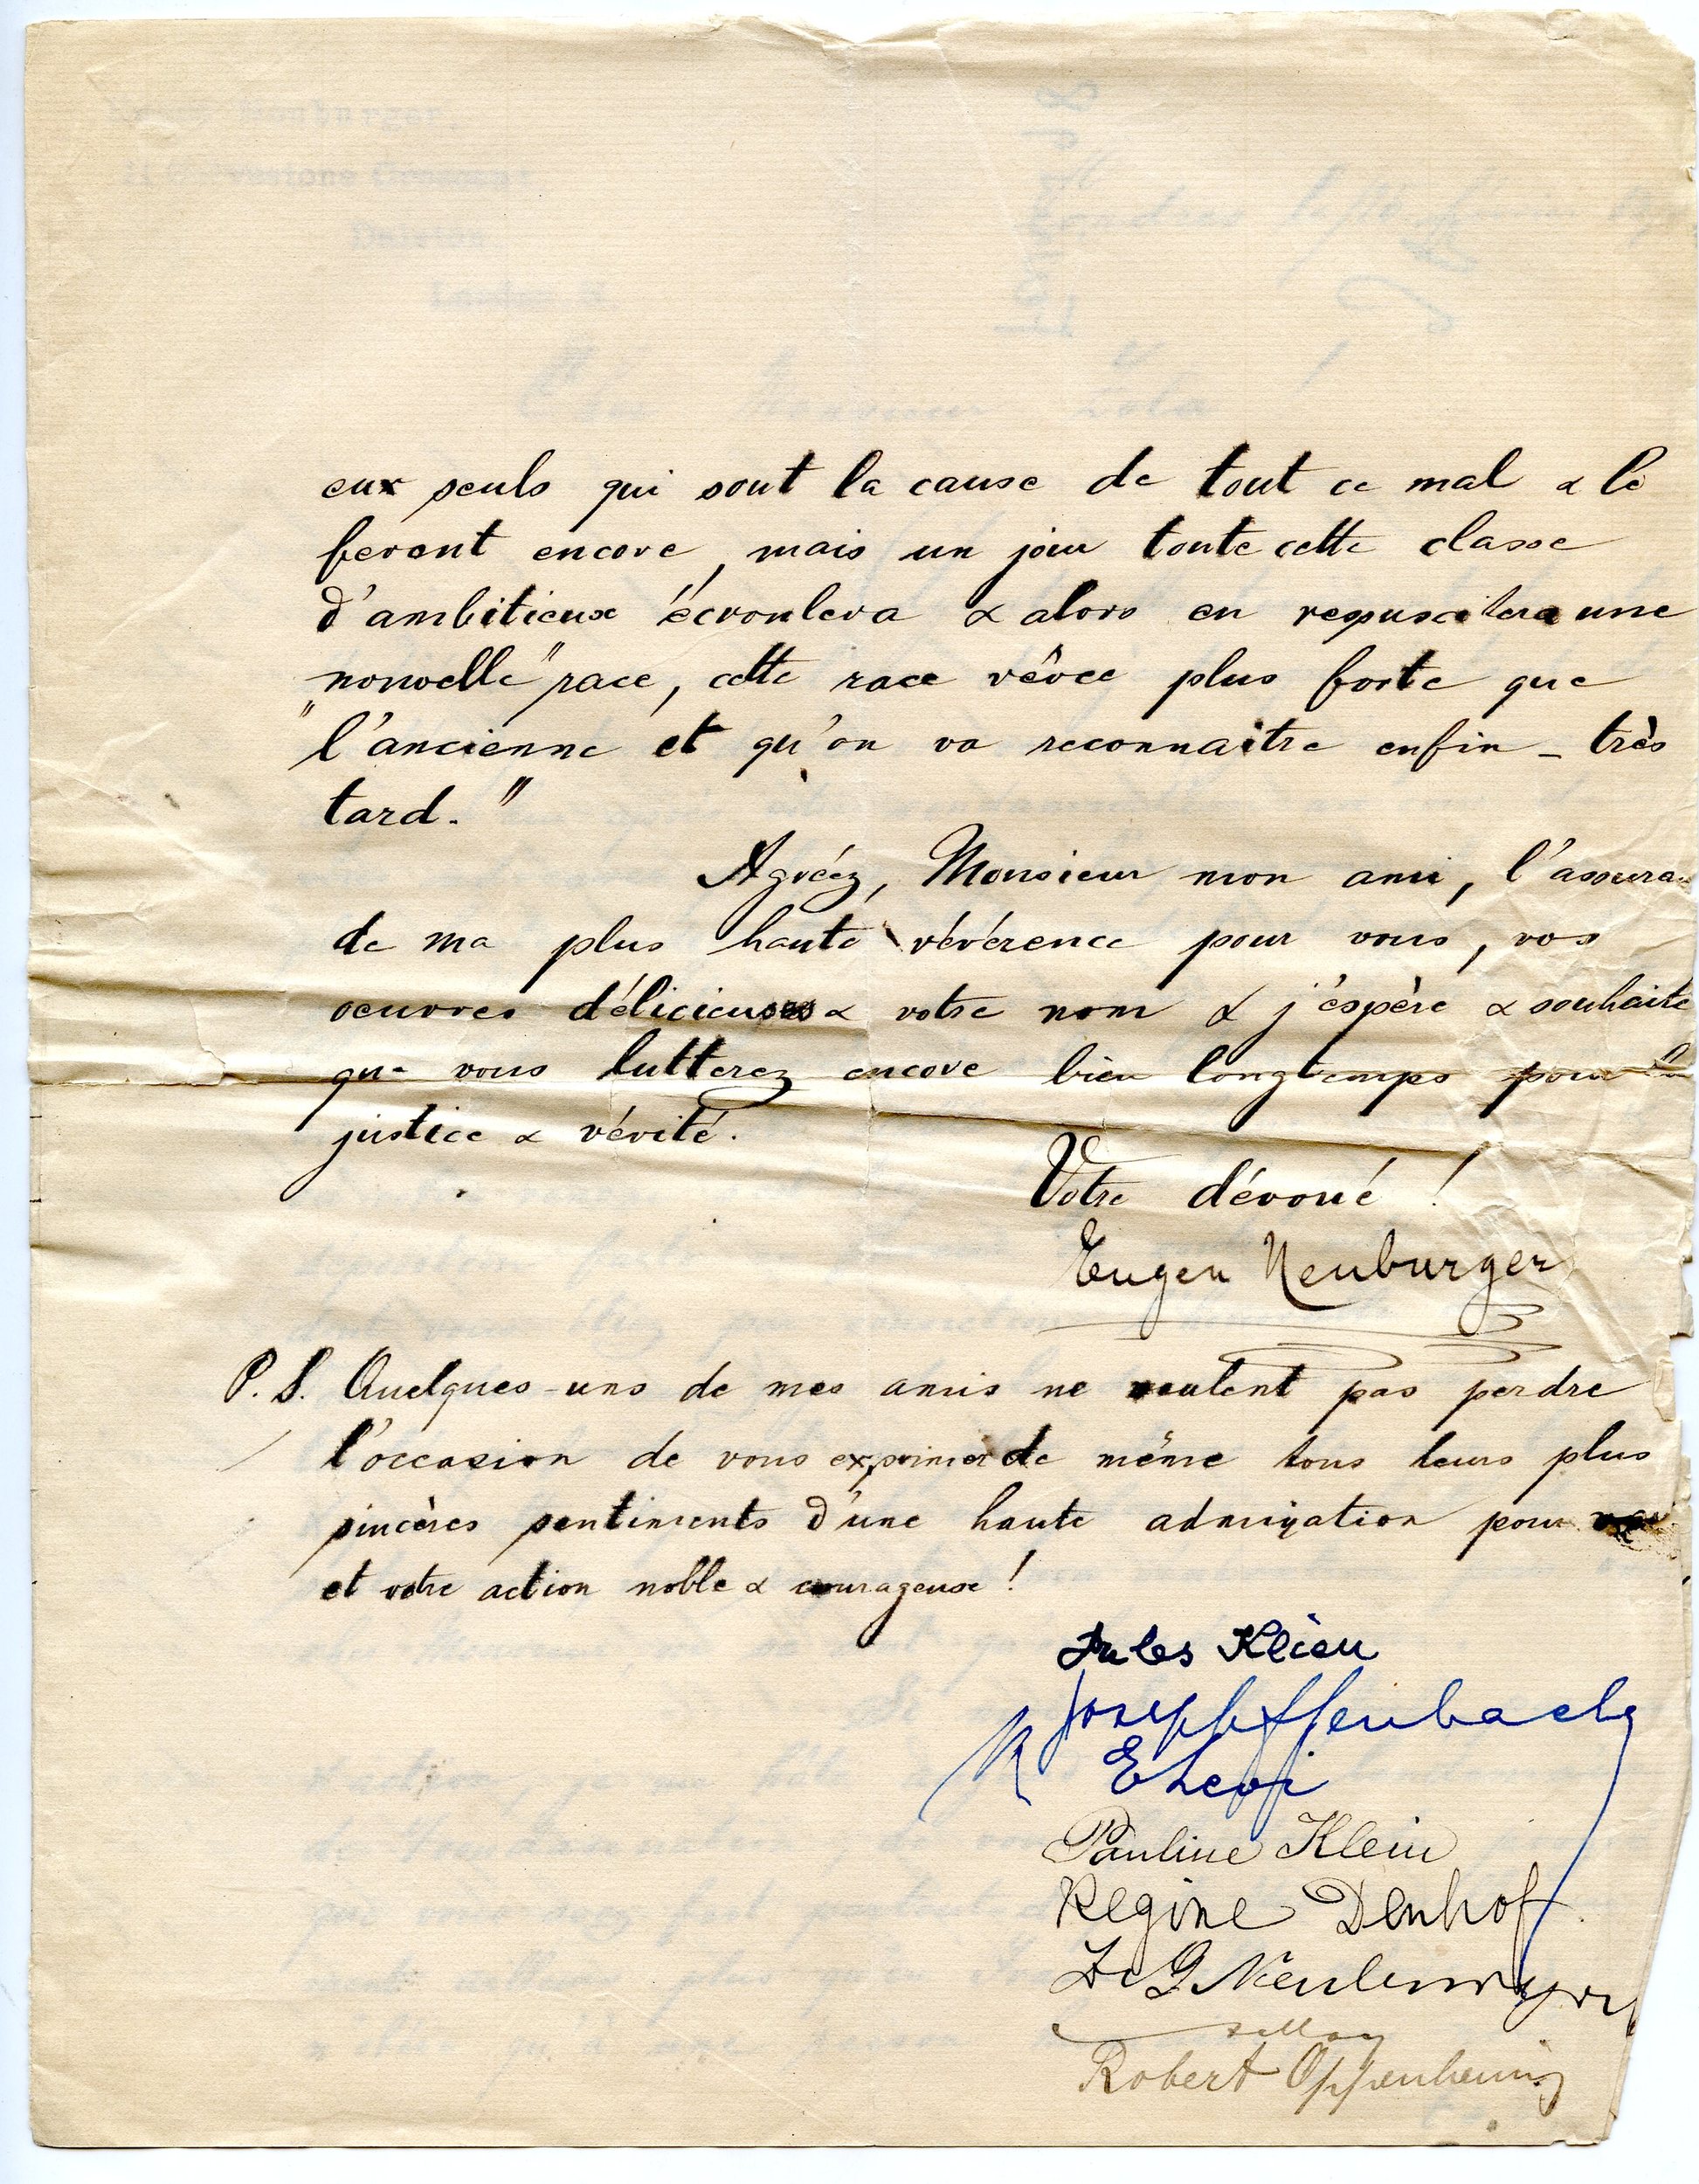 eux seuls qui sont la cause de tout ce mal & le
feront encore, mais un jour toute cette classe
d'ambitieux écroulera & alors en ressuscitera une
"nouvelle" race, cette race rêvée plus forte que
l'ancienne et qu'on va reconnaitre enfin – très
tard."
Agréez, Monsieur mon ami, l'assuran
de ma plus haute révérence pour vous, vos
oeuvres délicieuses & votre nom & j'espère & souhaite
que vous lutterez encore bien longtemps pour la
justice & vérité.
Votre dévoué !
Eugen Neuburger
P. S. Quelques-uns de mes amis ne veulent pas perdre
l'occasion de vous exprimer de même tous leurs plus
sincères sentiments d'une haute admiration pour
et votre action noble & courageuse !
Jules Klein
Joseph Offenbach
E Levi
Pauline Klein
Regine Denhof
Robert Oppenheim